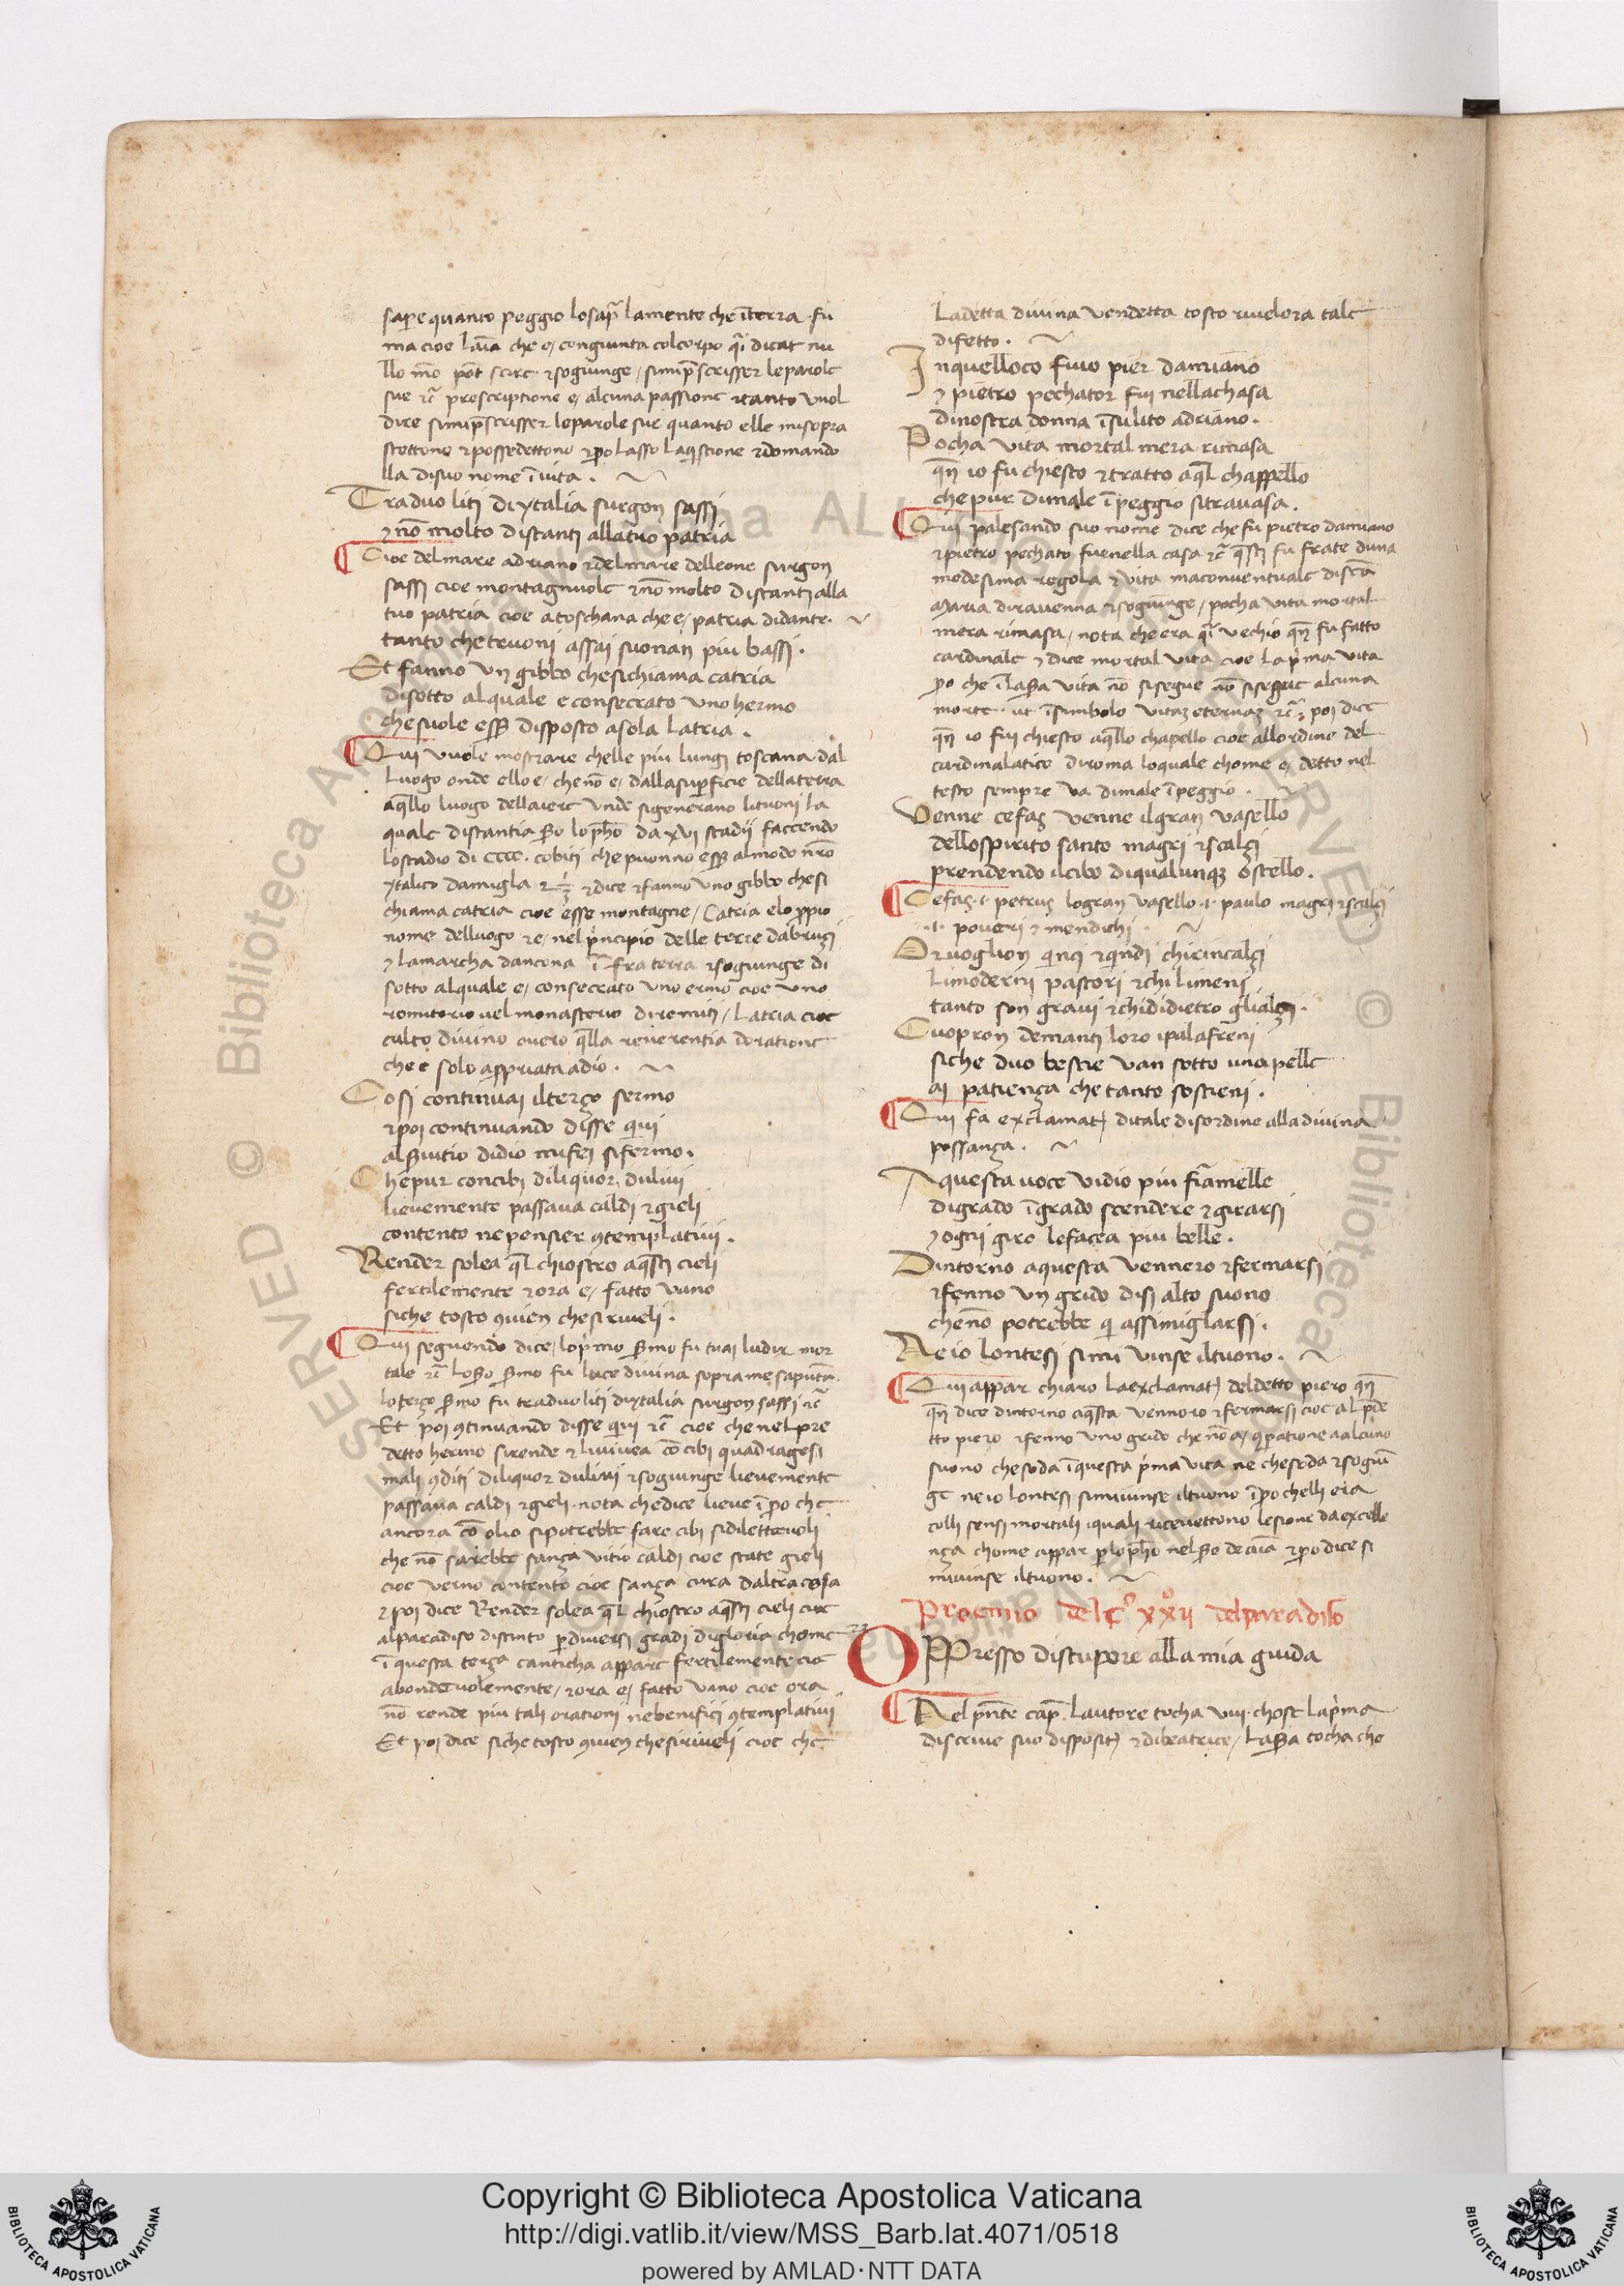 sape quanto peggio lo sapra la mente che ī terra fu
ma cioe laīa che e congiunta col corpo q̄i dicat nu
llo mō pōt scire ⁊ sogiunge / si mi p̄scrisser le parole
sue ⁊c̄ prescriptione e alcuna passione ⁊ tanto vuol
dire si mi p̄scrisser le parole sue quanto elle mi sopra
stettono ⁊ possedettono ⁊ p̄o lasso la q̄stione ⁊ domando
lla di suo nome ī vita .
Tra duo liti di ytalia surgon sassi
⁊ nō molto distanti alla tuo patria
Cioe del mare adriano ⁊ del mare del leone surgon
sassi cioe montagnuole ⁊ nō molto distanti alla
tuo patria cioe a toschana che e / patria di dante.
tanto che tevoni assai suonan piu bassi .
Et fanno un gibbo che si chiama catria
di sotto al quale e consecrato uno hermo
che suole ess̄ disposto a sola latria .
Qui vuole mostrare chelle piu lungi toscana dal
luogo onde ello e / che nō e / dalla sup̄ficie della terra
a q̄llo luogo dell aiere unde si generano li tuoni la
quale distantia s̄o lo ph̄o da xvi stadii faccendo
lo stadio di cccc. cobiti che puonno ess̄ al modo nr̄o
ytalico da migla 2 ½ ⁊ dice ⁊ fanno uno gibbo che si
chiama catria cioe esse montagne / Catria e lo p̄pio
nome del luogo ⁊ e / nel p̄ncipio delle terre dabruzi
⁊ la marcha dancona ī fra terra ⁊ sogiunge di
sotto al quale e / consecrato uno ermo cioe uno
romitorio vel monasterio di remiti / latria cioe
culto divino overo q̄lla reverentia doratione
che e solo app̄riata a dio .
Cosi continuai il terzo sermo
⁊ poi continuando disse quivi
al s̄vitio di dio mi fei si fermo .
Che pur con cibi di liquor dulivi
lievemente passava caldi ⁊ gieli
contento ne pensier ꝯtemplativi .
Render solea q̄l chiostro a q̄sti cieli
fertilemente ⁊ ora e / fatto vano
si che tosto ꝯvien che si riveli .
Qui seguendo dice / lo p̄mo s̄mo fu tu ai ludir mor
tale ⁊c̄ lo s̄o s̄mo fu luce divina sopra me sapūta
lo terzo s̄mo fu tra duo liti di ytalia surgon sassi ⁊c̄
Et poi ꝯtinuando disse quivi ⁊c̄ cioe che nel pre
detto hermo si rende ⁊ li vivea cō cibi quadragesi
mali ꝯditi di liquor dulivi ⁊ sogiunge lievemente
passava caldi ⁊ gieli . nota che dice lieve īp̄o che
ancora cō olio si potrebbe fare cibi si dilettevoli
che nō sarebbe sanza vitio caldi cioe state gieli
cioe verno contento cioe sanza cura daltra cosa
⁊ poi dice Render solea q̄l chiostro a q̄sti cieli cioe
al paradiso distinto p̄ diversi gradi di gloria chome
ī questa terza canticha appare fertilemente cioe
abondevolemente / ⁊ ora e / fatto vano cioe ora
nō rende piu tali orationi ne benifici ꝯtemplativi
Et poi dice si che tosto ꝯvien che si riveli cioe che
La detta divina vendetta tosto rivelera tale
difetto .
In quel loco fu io pier damiano
⁊ pietro pechator fui nella chasa
di nostra donna ī su lito adriano .
Pocha vita mortal mera rimasa
q̄n io fu chiesto ⁊ tratto a q̄l chappello
che pur di male ī peggio si travasa .
Qui palesando suo nome dice che fu pietro damiano
⁊ pietro pechato fue nella casa ⁊c̄ q̄sti fu frate duna
modesima regola ⁊ vita ma conventuale di scā
Maria di ravenna ⁊ sogiunge / pocha vita mortal
mera rimasa / nota che era q̄i vechio q̄n fu fatto
cardinale ⁊ dice mortal vita cioe la p̄ma vita
p̄o che ī la s̄a vita nō si segue nō si segue alcuna
morte . ut ī simbolo vitaȝ eternaȝ ⁊c̄ ; poi dice
q̄n io fui chiesto a q̄llo chapello cioe all ordine del
cardinalatico di roma lo quale chome e / detto nel
testo sempre va di male ī peggio .
Venne cefas venne il gran vasello
dello spirito santo magri ⁊ scalzi
prendendo il cibo di qualunqȝ ostello .
Cefas .i. petrus lo gran vasello .i. paulo magri ⁊ scalzi
.i. poveri ⁊ mendichi .
Or voglion quinci ⁊ quindi chi rincalzi
li moderni pastori ⁊ chi li meni
tanto son gravi ⁊ chi didietro gli alzi .
Cuopron demanti loro i palafreni
si che duo bestie van sotto una pelle
ai patienza che tanto sostieni .
Qui fa exclamatꝭ di tale disordine alla divina
possanza .
A questa voce vidio piu fiamelle
di grado ī grado scendere ⁊ girarsi
⁊ ogni giro le facea piu belle .
Dintorno a questa vennero ⁊ fermarsi
⁊ fenno un grido di si alto suono
che nō potrebbe qi assimiglarsi .
Ne io lontesi si mi vinse il tuono .
Qui appar chiaro la exclamatꝭ del detto piero q̄n
q̄n dice dintorno a q̄sta vennoro ⁊ fermarsi cioe al p̄de
tto piero ⁊ fenno uno grido che nō a / ꝯparatione a alcuno
suono che s oda ī questa p̄ma vita ne che s oda ⁊ sogiū
ge ne io lontesi si mi vinse il tuono īp̄o chelli era
colli sensi mortali i quali ricevettono lesione da excelle
nza chome appar p̄ lo ph̄o nel s̄o de aīa ⁊ p̄o dice si
mi vinse il tuono .
Proemio del cº xxii del paradiso
OPPresso di stupore alla mia guida
Nel p̄nte cap̄. lautore tocha viii. chose la p̄ma
discrive suo dispositꝭ ⁊ di beatrice / la s̄a tocha che
Copyright © Biblioteca Apostolica Vaticana
http://digi.vatlib.it/view/MSS_Barb.lat.4071/0518
powered by AMLAD·NTT DATA